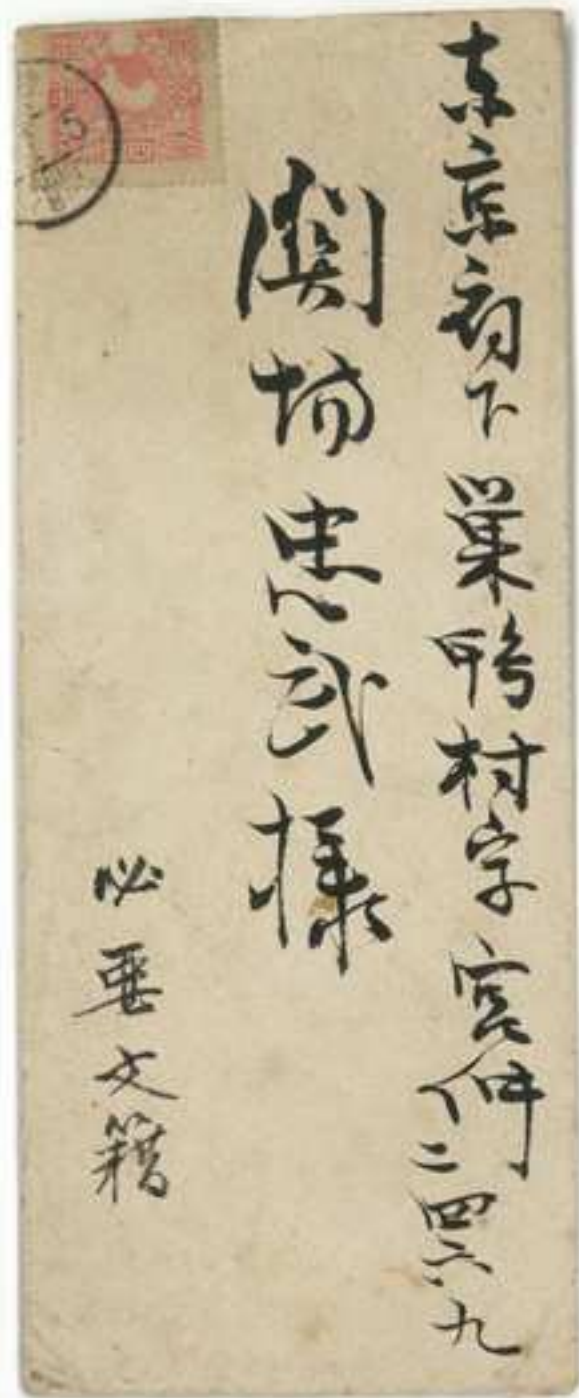 東京府下巣鴨村字宮仲二四六九
関場忠武様
必要文籍